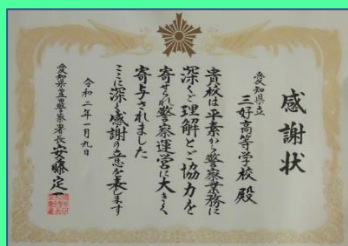 感謝状
愛知県立
三好高等学校 殿
貴校は平素から警察業務に
深くご理解とご協力を
寄せられ警察運営に大きく
寄与されました
ここに深く感謝の意を表します
令和二年一月九日
愛知県豊田警察署長 安藤定一